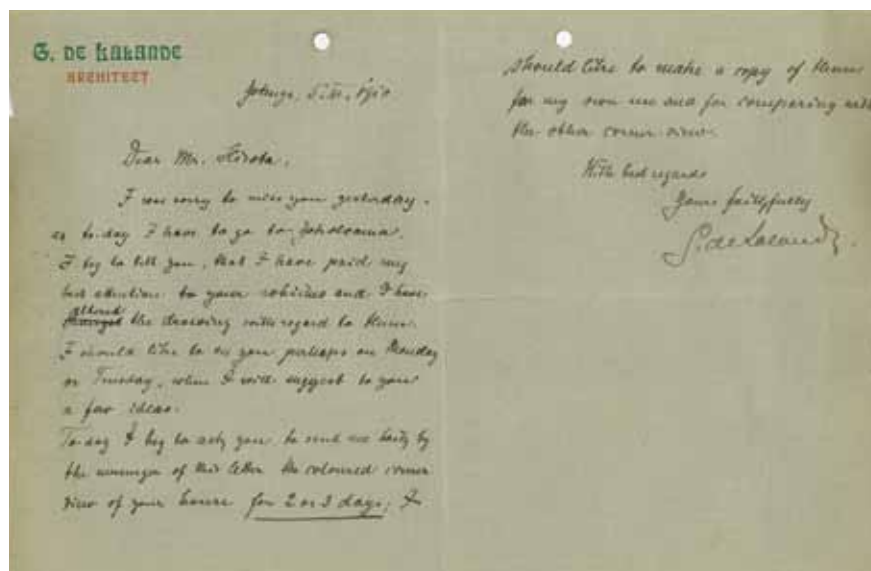 G. DE LALANDE
ARCHITECT
Dear Mr.
I was sorry to miss you yesterday,
as to-day I have to go to Yokohama.
I beg to tell you, that I have paid my
best attention to your and I have
altered the drawing with regard to them.
I should like to see you perhaps on Monday
or Tuesday, when I will suggest to you
a few ideas.
To-day I beg to ask you to send me by
the messenger of this letter the coloured corner
view of your house for 2 or 3 days, I
should like to make a copy of them
for my own use and for comparing with
the other corner view.
With best regards
Yours faithfully
G. de Lalande.